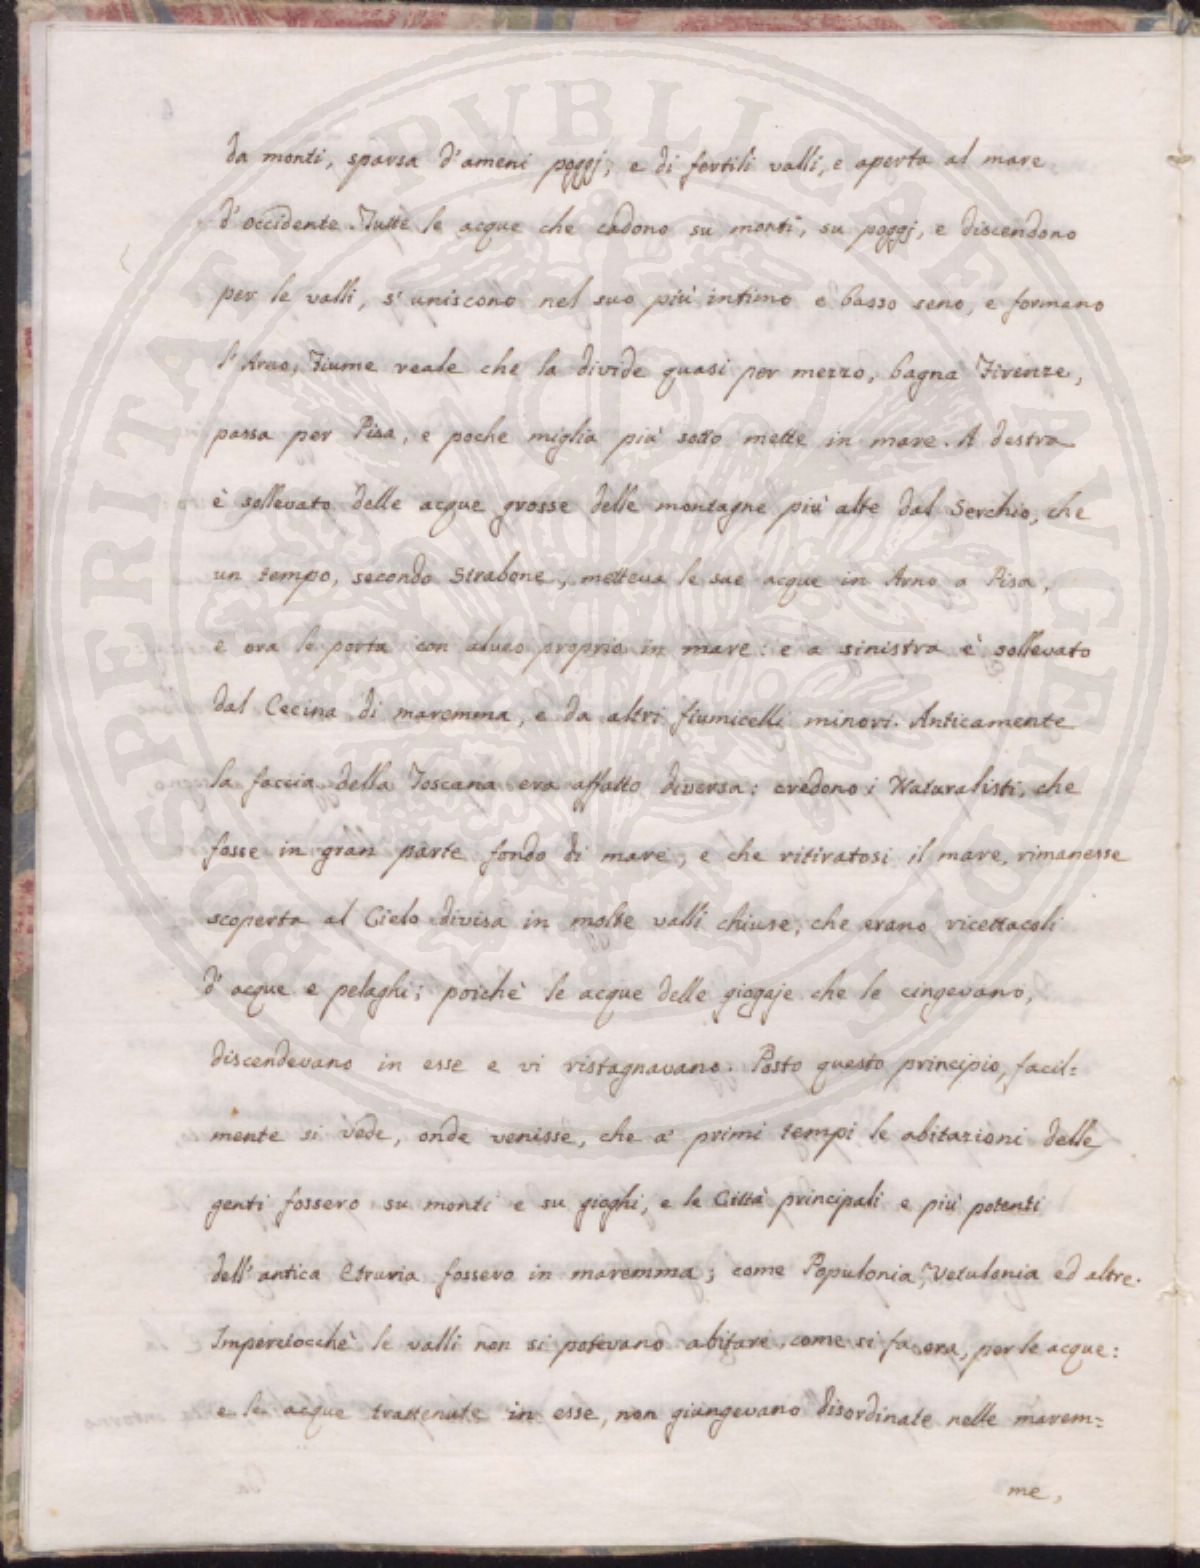 da monti, sparsa d'ameni poggj, e di fertili valli, e aperta al mare
d'occidente. Tutte le acque che cadono su monti, su poggj, e discendono
per le valli, s'uniscono nel suo più intimo e basso seno, e formano
l'Arno, Fiume reale che la divide quasi per mezzo, bagna Firenze,
passa per Pisa, e poche miglia più sotto mette in mare. A destra
è sollevato delle acque grosse delle montagne più alte dal Serchio, che
un tempo, secondo Strabone, metteva le sue acque in Arno a Pisa,
e ora le porta con alveo proprio in mare: e a sinistra è sollevato
dal Cecina di maremma, e da altri fiumicelli minori. Anticamente
la faccia della Toscana era affatto diversa: credono i Naturalisti, che
fosse in gran parte fondo di mare, e che ritiratosi il mare, rimanesse
scoperta al Cielo divisa in molte valli chiuse, che erano ricettacoli
d'acque e pelaghi; poichè le acque delle giogaje che le cingevano,
discendevano in esse e vi ristagnavano. Posto questo principio, facil=
mente si vede, onde venisse, che a' primi tempi le abitazioni delle
genti fossero su monti e su gioghi, e le Città principali e più potenti
dell'antica Etruria fossero in maremma; come Populonia, Vetulonia ed altre.
Imperciocchè le valli non si potevano abitare, come si fa ora, per le acque:
e le acque trattenute in esse, non giungevano disordinate nelle marem=
me,
PROSPERITATI PVBLICAE AVGENDAE